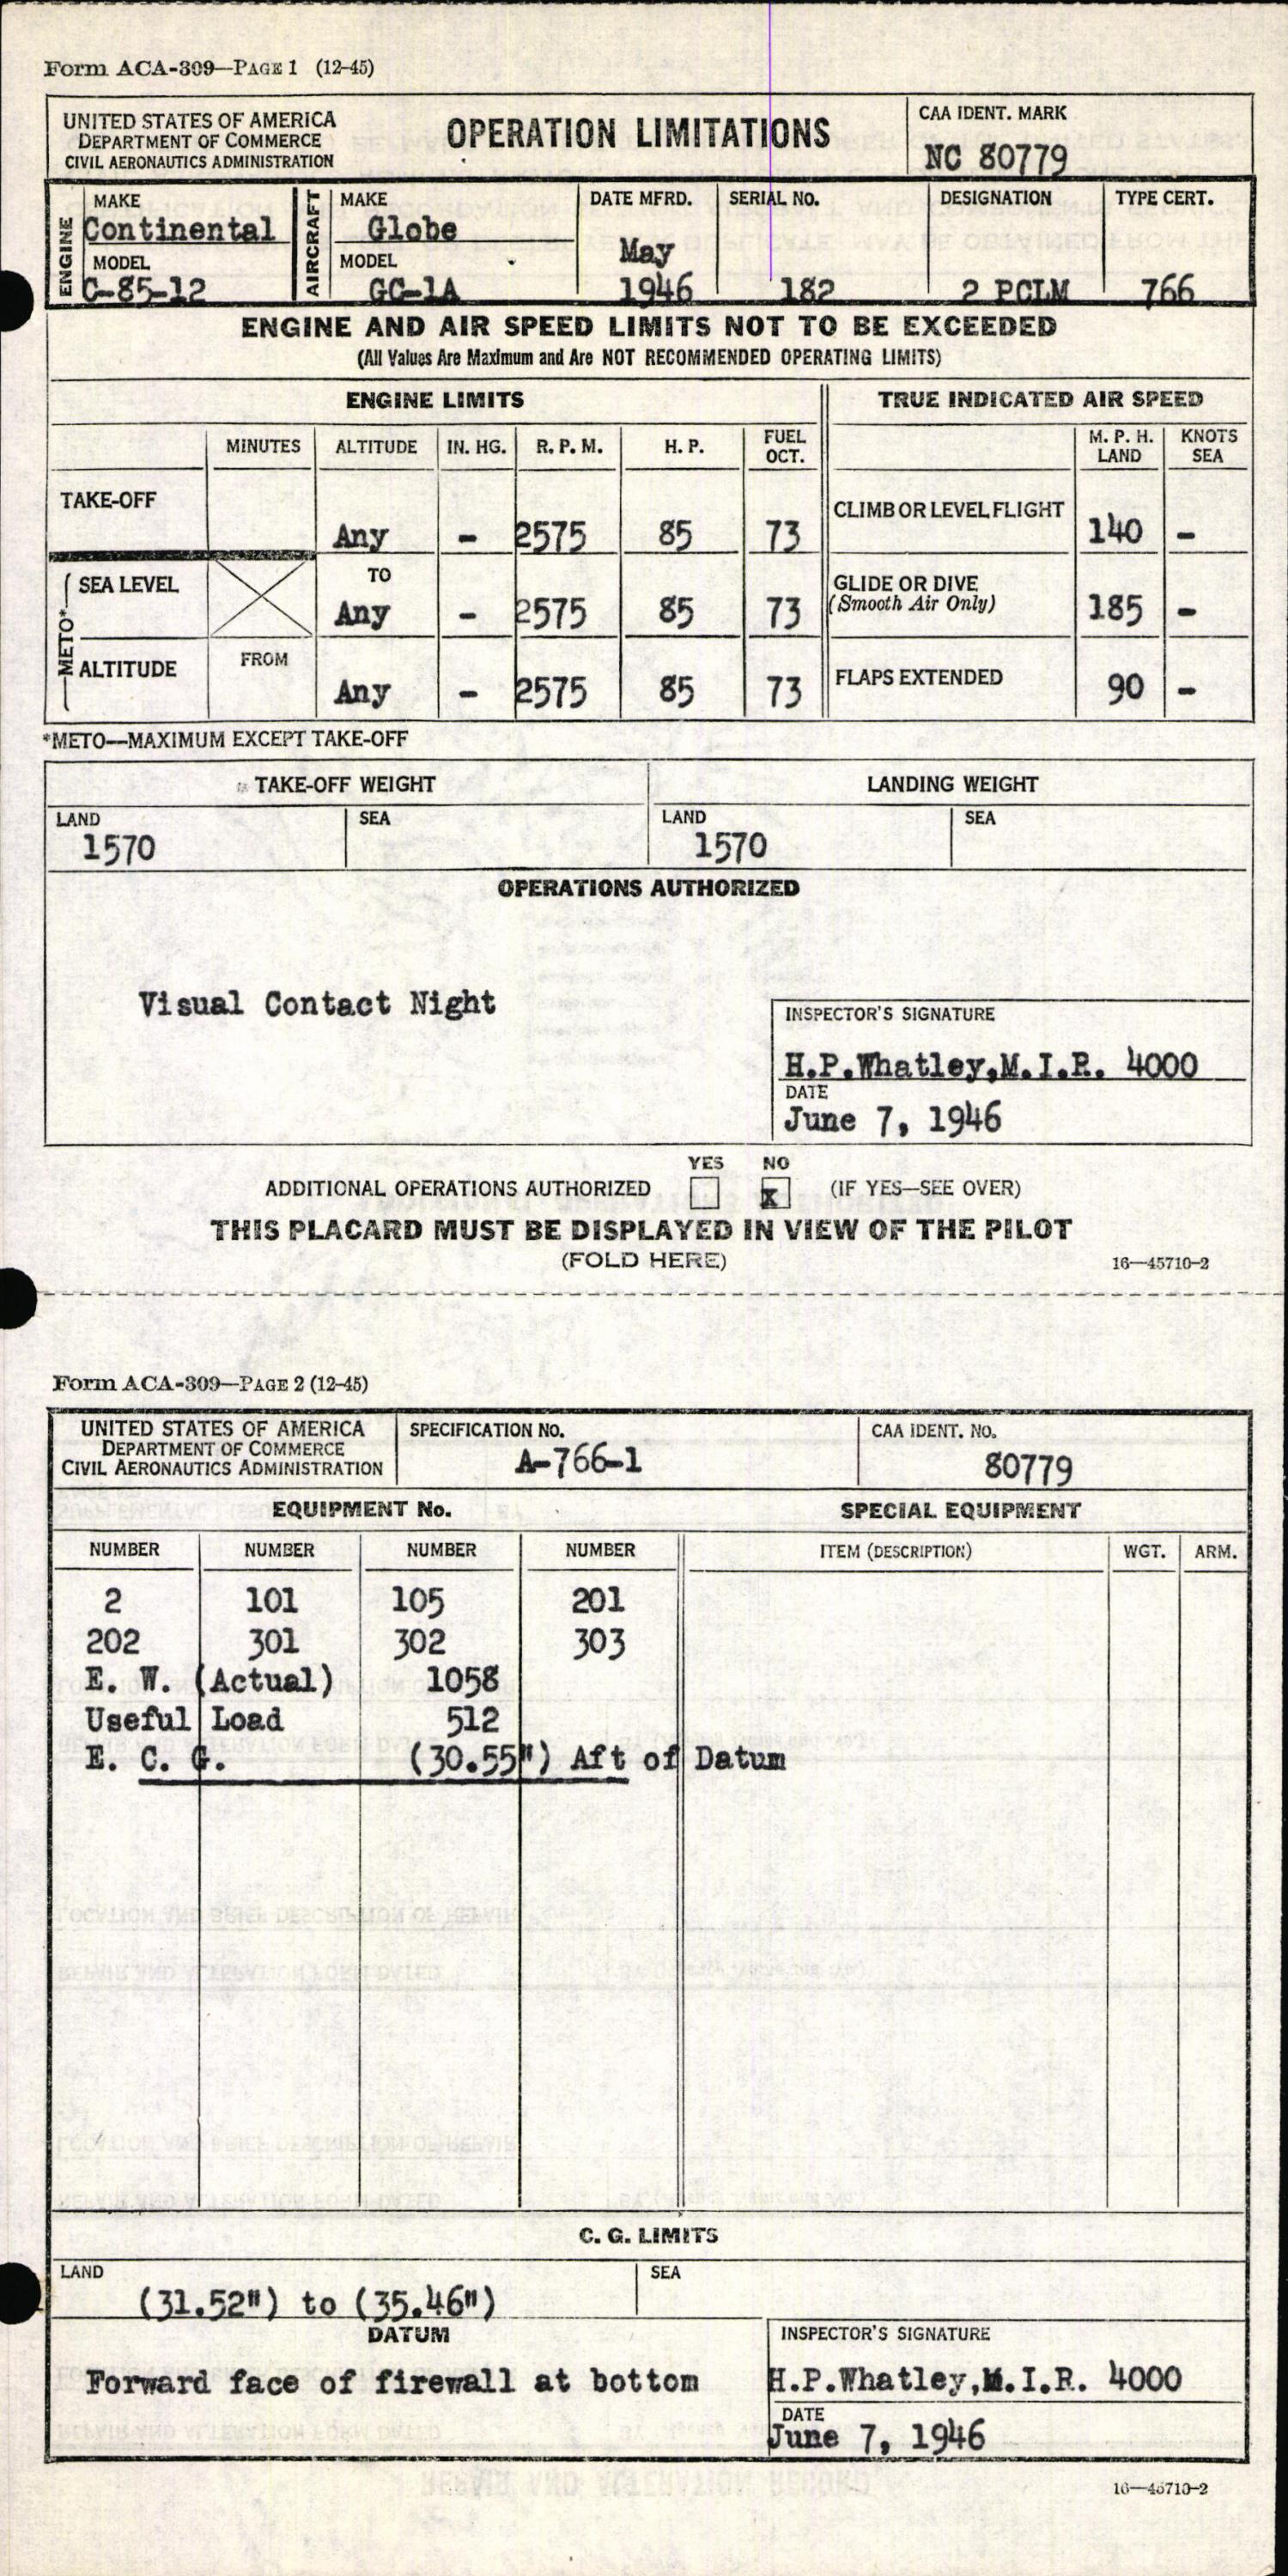 Form ACA-309—PAGE 1 (12-45)
UNITED STATES OF AMERICA
DEPARTMENT OF COMMERCE
CIVIL AERONAUTICS ADMINISTRATION
OPERATION LIMITATIONS
CAA IDENT. MARK
NC 80779
ENGINE
MAKE
Continental
MODEL
C-85-12
AIRCRAFT
MAKE
Globe
MODEL
GC-1A
DATE MFRD.
May
1946
SERIAL NO.
182
DESIGNATION
2 PCLM
TYPE CERT.
766
ENGINE AND AIR SPEED LIMITS NOT TO BE EXCEEDED
(All Values Are Maximum and Are NOT RECOMMENDED OPERATING LIMITS)
ENGINE LIMITS TRUE INDICATED AIR SPEED
MINUTES ALTITUDE IN. HG. R. P. M. H. P. FUEL OCT. M. P. H. LAND KNOTS SEA
TAKE-OFF Any - 2575 85 73 CLIMB OR LEVEL FLIGHT 140 -
METO*
SEA LEVEL TO Any - 2575 85 73 GLIDE OR DIVE (Smooth Air Only) 185 -
ALTITUDE FROM Any - 2575 85 73 FLAPS EXTENDED 90 -
*METO—MAXIMUM EXCEPT TAKE-OFF
TAKE-OFF WEIGHT LANDING WEIGHT
LAND SEA LAND SEA
1570 1570
OPERATIONS AUTHORIZED
Visual Contact Night
INSPECTOR'S SIGNATURE
H.P.Whatley,M.I.R. 4000
DATE
June 7, 1946
YES NO
ADDITIONAL OPERATIONS AUTHORIZED X (IF YES—SEE OVER)
THIS PLACARD MUST BE DISPLAYED IN VIEW OF THE PILOT
(FOLD HERE) 16—45710-2
Form ACA-309—PAGE 2 (12-45)
UNITED STATES OF AMERICA
DEPARTMENT OF COMMERCE
CIVIL AERONAUTICS ADMINISTRATION
SPECIFICATION NO.
A-766-1
CAA IDENT. NO.
80779
EQUIPMENT No. SPECIAL EQUIPMENT
NUMBER NUMBER NUMBER NUMBER ITEM (DESCRIPTION) WGT. ARM.
2 101 105 201
202 301 302 303
E. W. (Actual) 1058
Useful Load 512
E. C. G. (30.55") Aft of Datum
C. G. LIMITS
LAND SEA
(31.52") to (35.46")
DATUM
Forward face of firewall at bottom
INSPECTOR'S SIGNATURE
H.P.Whatley,M.I.R. 4000
DATE
June 7, 1946
16—45710-2